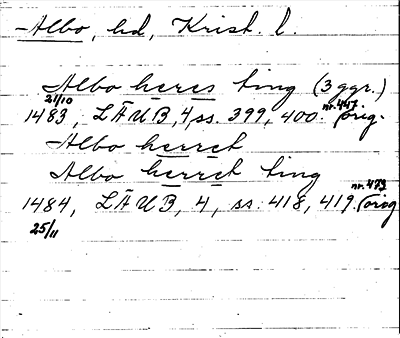 -Albo, hd, Krist. l.
Albo heres ting (3 ggr.)
21/10 nr. 447
1483, LÄUB, 4, ss. 399, 400. (orig.
Albo herret
Albo herret ting
nr. 473
1484, LÄUB, 4, ss. 418, 419. (orig
25/11